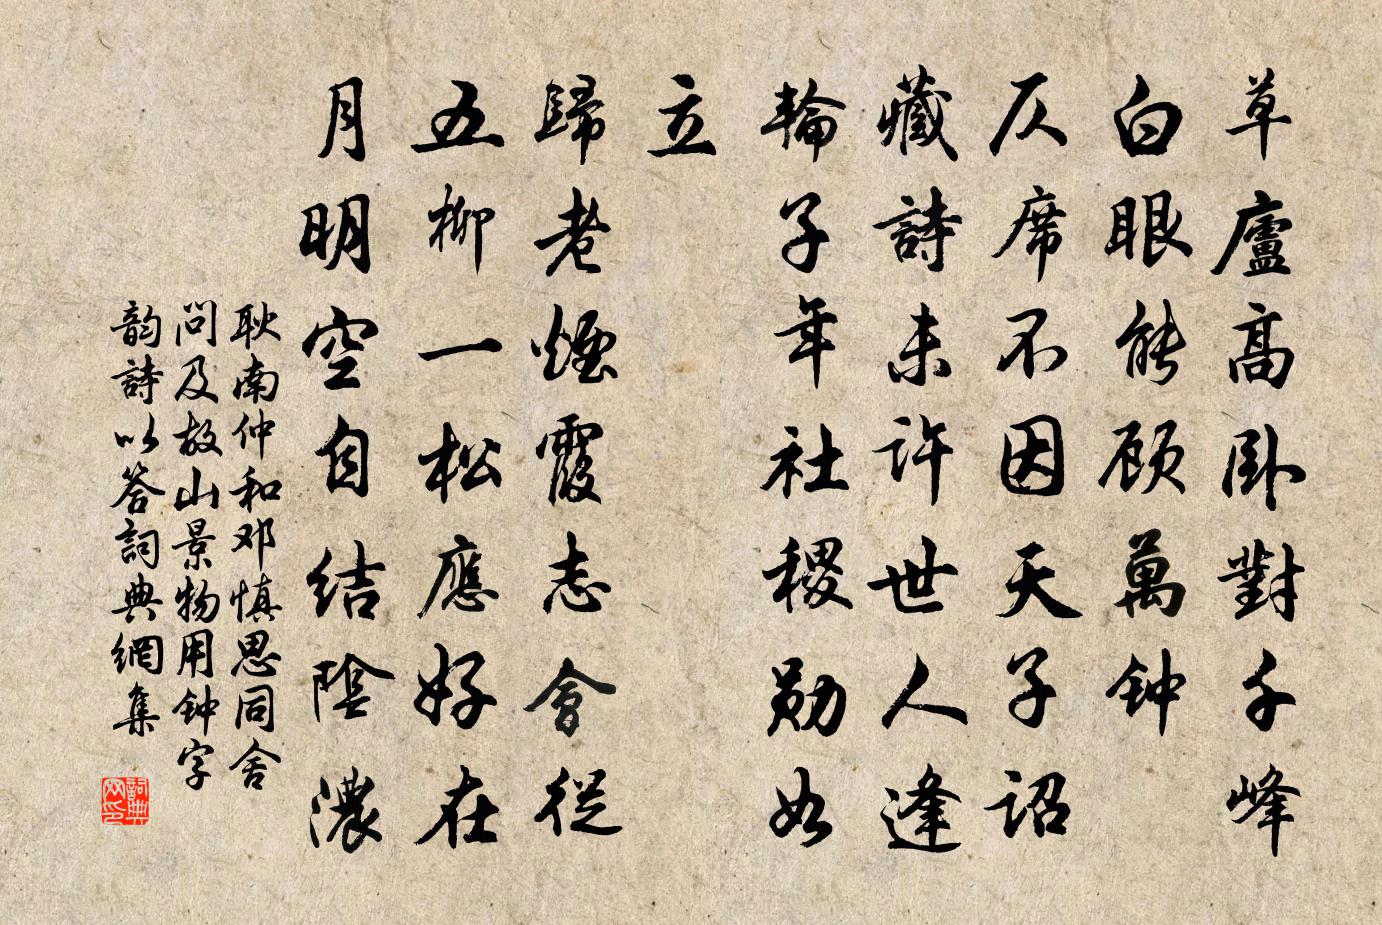 草廬高卧對千峰
白眼能顾萬钟
仄席不因天子詔
藏詩未許世人逢
輪子年社稷勋如
立
歸老煙霞志會從
五柳一松應好在
月明空自结陰濃
耿南仲和邓慎思同舍
問及故山景物用钟字
韵詩以答詞典網集
詞典
网印